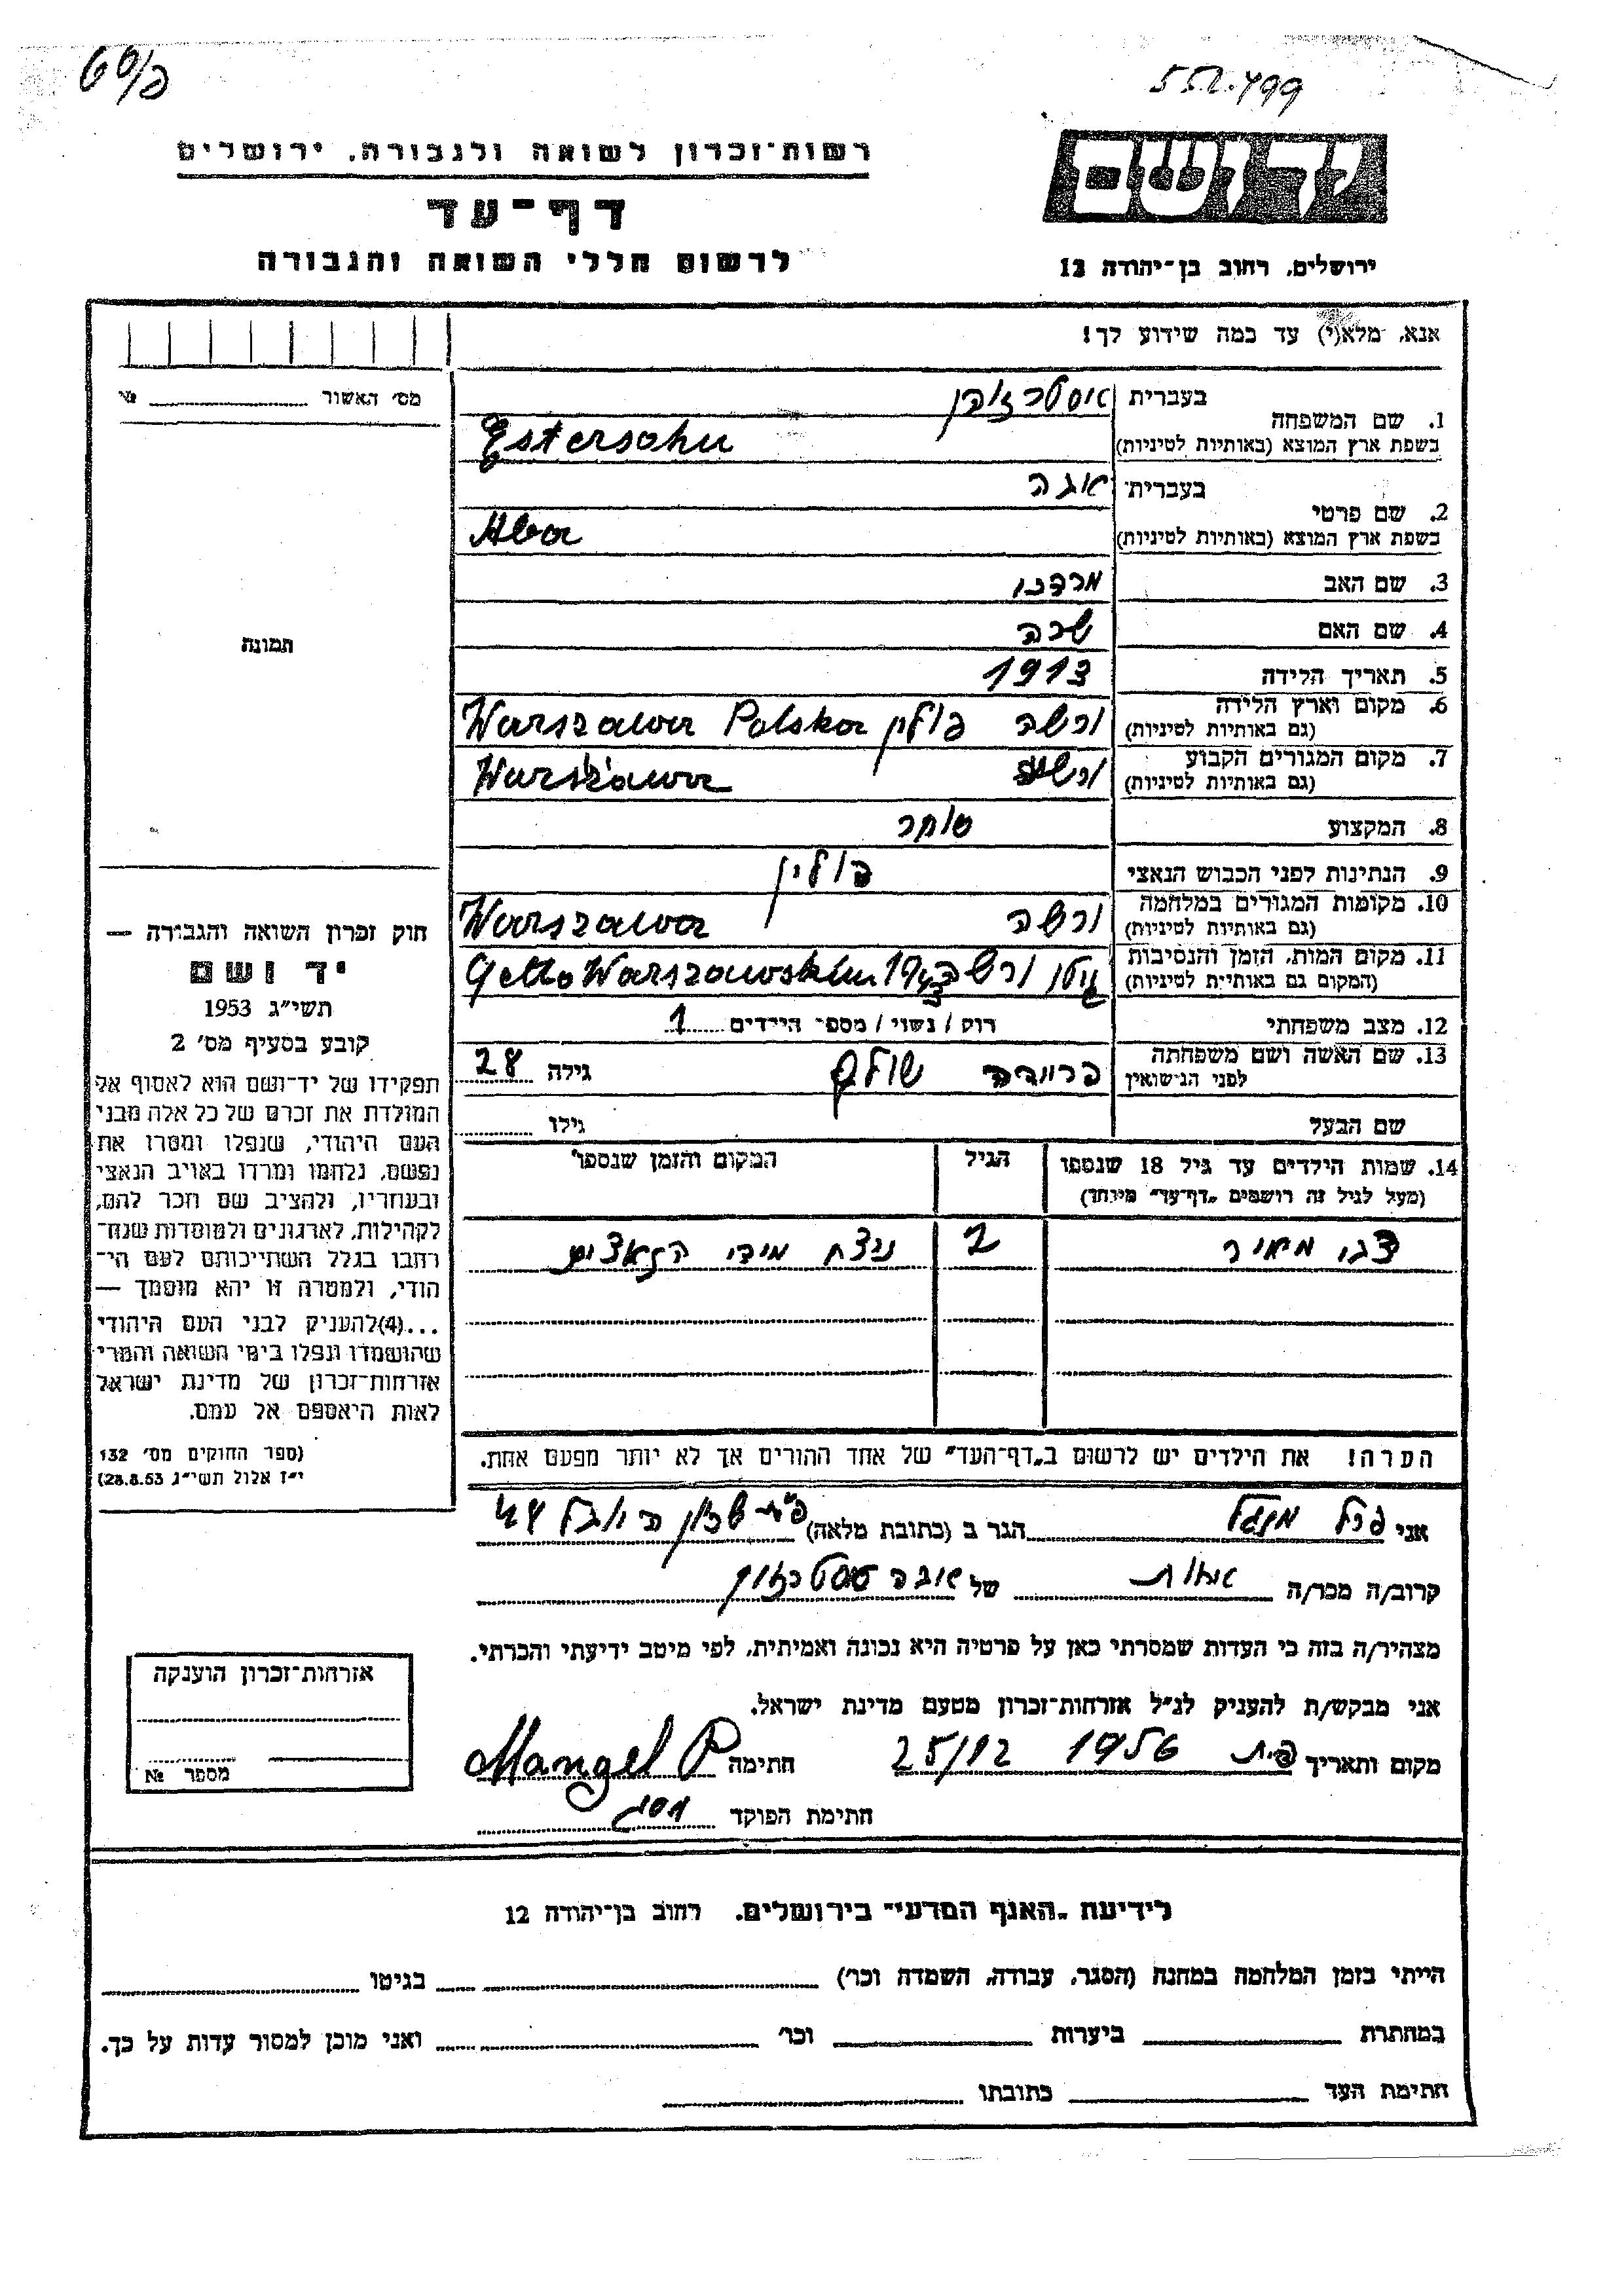 רשות־זכרון לשואה ולגבורה, ירושלים
דף־עד
לרשום חללי השואה והגבורה
יד ושם
ירושלים, רחוב בן־יהודה 12
אנא, מלא(י) עד כמה שידוע לך!
מס' האשור №
1. שם המשפחה
בעברית
בשפת ארץ המוצא (באותיות לטיניות)
Estersohn
2. שם פרטי
בעברית
בשפת ארץ המוצא (באותיות לטיניות)
Aba
3. שם האב מרדכי
4. שם האם שרה
5. תאריך הלידה 1913
6. מקום וארץ הלידה ורשה פולין Warszawa Polska
(גם באותיות לטיניות)
7. מקום המגורים הקבוע ורשה Warszawa
(גם באותיות לטיניות)
8. המקצוע סוחר
9. הנתינות לפני הכבוש הנאצי פולין
10. מקומות המגורים במלחמה ורשה Warszawa
(גם באותיות לטיניות)
11. מקום המות, הזמן והנסיבות גיטו ורשה 1943 Getto Warszawskim
(המקום גם באותיות לטיניות)
12. מצב משפחתי רוק / נשוי / מספר הילדים 1
13. שם האשה ושם משפחתה
לפני הנישואין
גילה 28
שם הבעל גילו
14. שמות הילדים עד גיל 18 שנספו
(מעל לגיל זה רושמים „דף־עד" מיוחד)
הגיל
המקום והזמן שנספו
צבי מאיר 2 נרצח מידי הנאצים
הערה! את הילדים יש לרשום ב„דף־העד" של אחד ההורים אך לא יותר מפעם אחת.
אני פרל מנגל הגר ב (כתובת מלאה)
קרוב/ה מכר/ה אחות של
מצהיר/ה בזה כי העדות שמסרתי כאן על פרטיה היא נכונה ואמיתית, לפי מיטב ידיעתי והכרתי.
אני מבקש/ת להעניק לנ"ל אזרחות־זכרון מטעם מדינת ישראל.
מקום ותאריך 25/12 1956 חתימה Mangel P
חתימת הפוקד
תמונה
חוק זכרון השואה והגבורה —
יד ושם
תשי"ג 1953
קובע בסעיף מס' 2
תפקידו של יד־ושם הוא לאסוף אל
המולדת את זכרם של כל אלה מבני
העם היהודי, שנפלו ומסרו את
נפשם, נלחמו ומרדו באויב הנאצי
ובעוזריו, ולהציב שם וזכר להם,
לקהילות, לארגונים ולמוסדות שנח־
רבו בגלל השתייכותם לעם הי־
הודי, ולמטרה זו יהא מוסמך —
...(4)להעניק לבני העם היהודי
שהושמדו ונפלו בימי השואה והמרי
אזרחות־זכרון של מדינת ישראל
לאות היאספם אל עמם.
(ספר החוקים מס' 132
י"ז אלול תשי"ג 28.8.53)
אזרחות־זכרון הוענקה
מספר №
לידיעת „האגף המדעי" בירושלים, רחוב בן־יהודה 12
הייתי בזמן המלחמה במחנה (הסגר, עבודה, השמדה וכו') בגיטו
במחתרת ביערות וכו' ואני מוכן למסור עדות על כך.
חתימת העד כתובתו